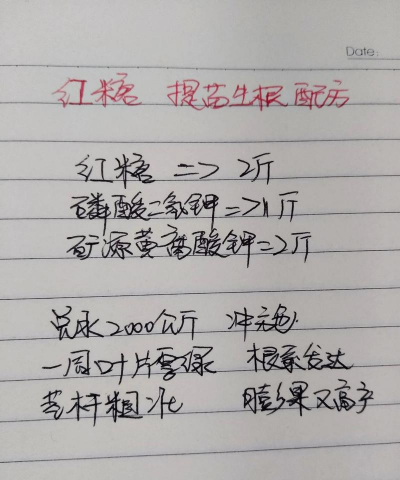 Date:
红糖 提苗生根配方
红糖 => 2斤
磷酸二氢钾=>1斤
矿源黄腐酸钾=>2斤
兑水2000公斤 冲完
一周叶片雾绿 根系发达
苗杆粗壮 膨果又高产